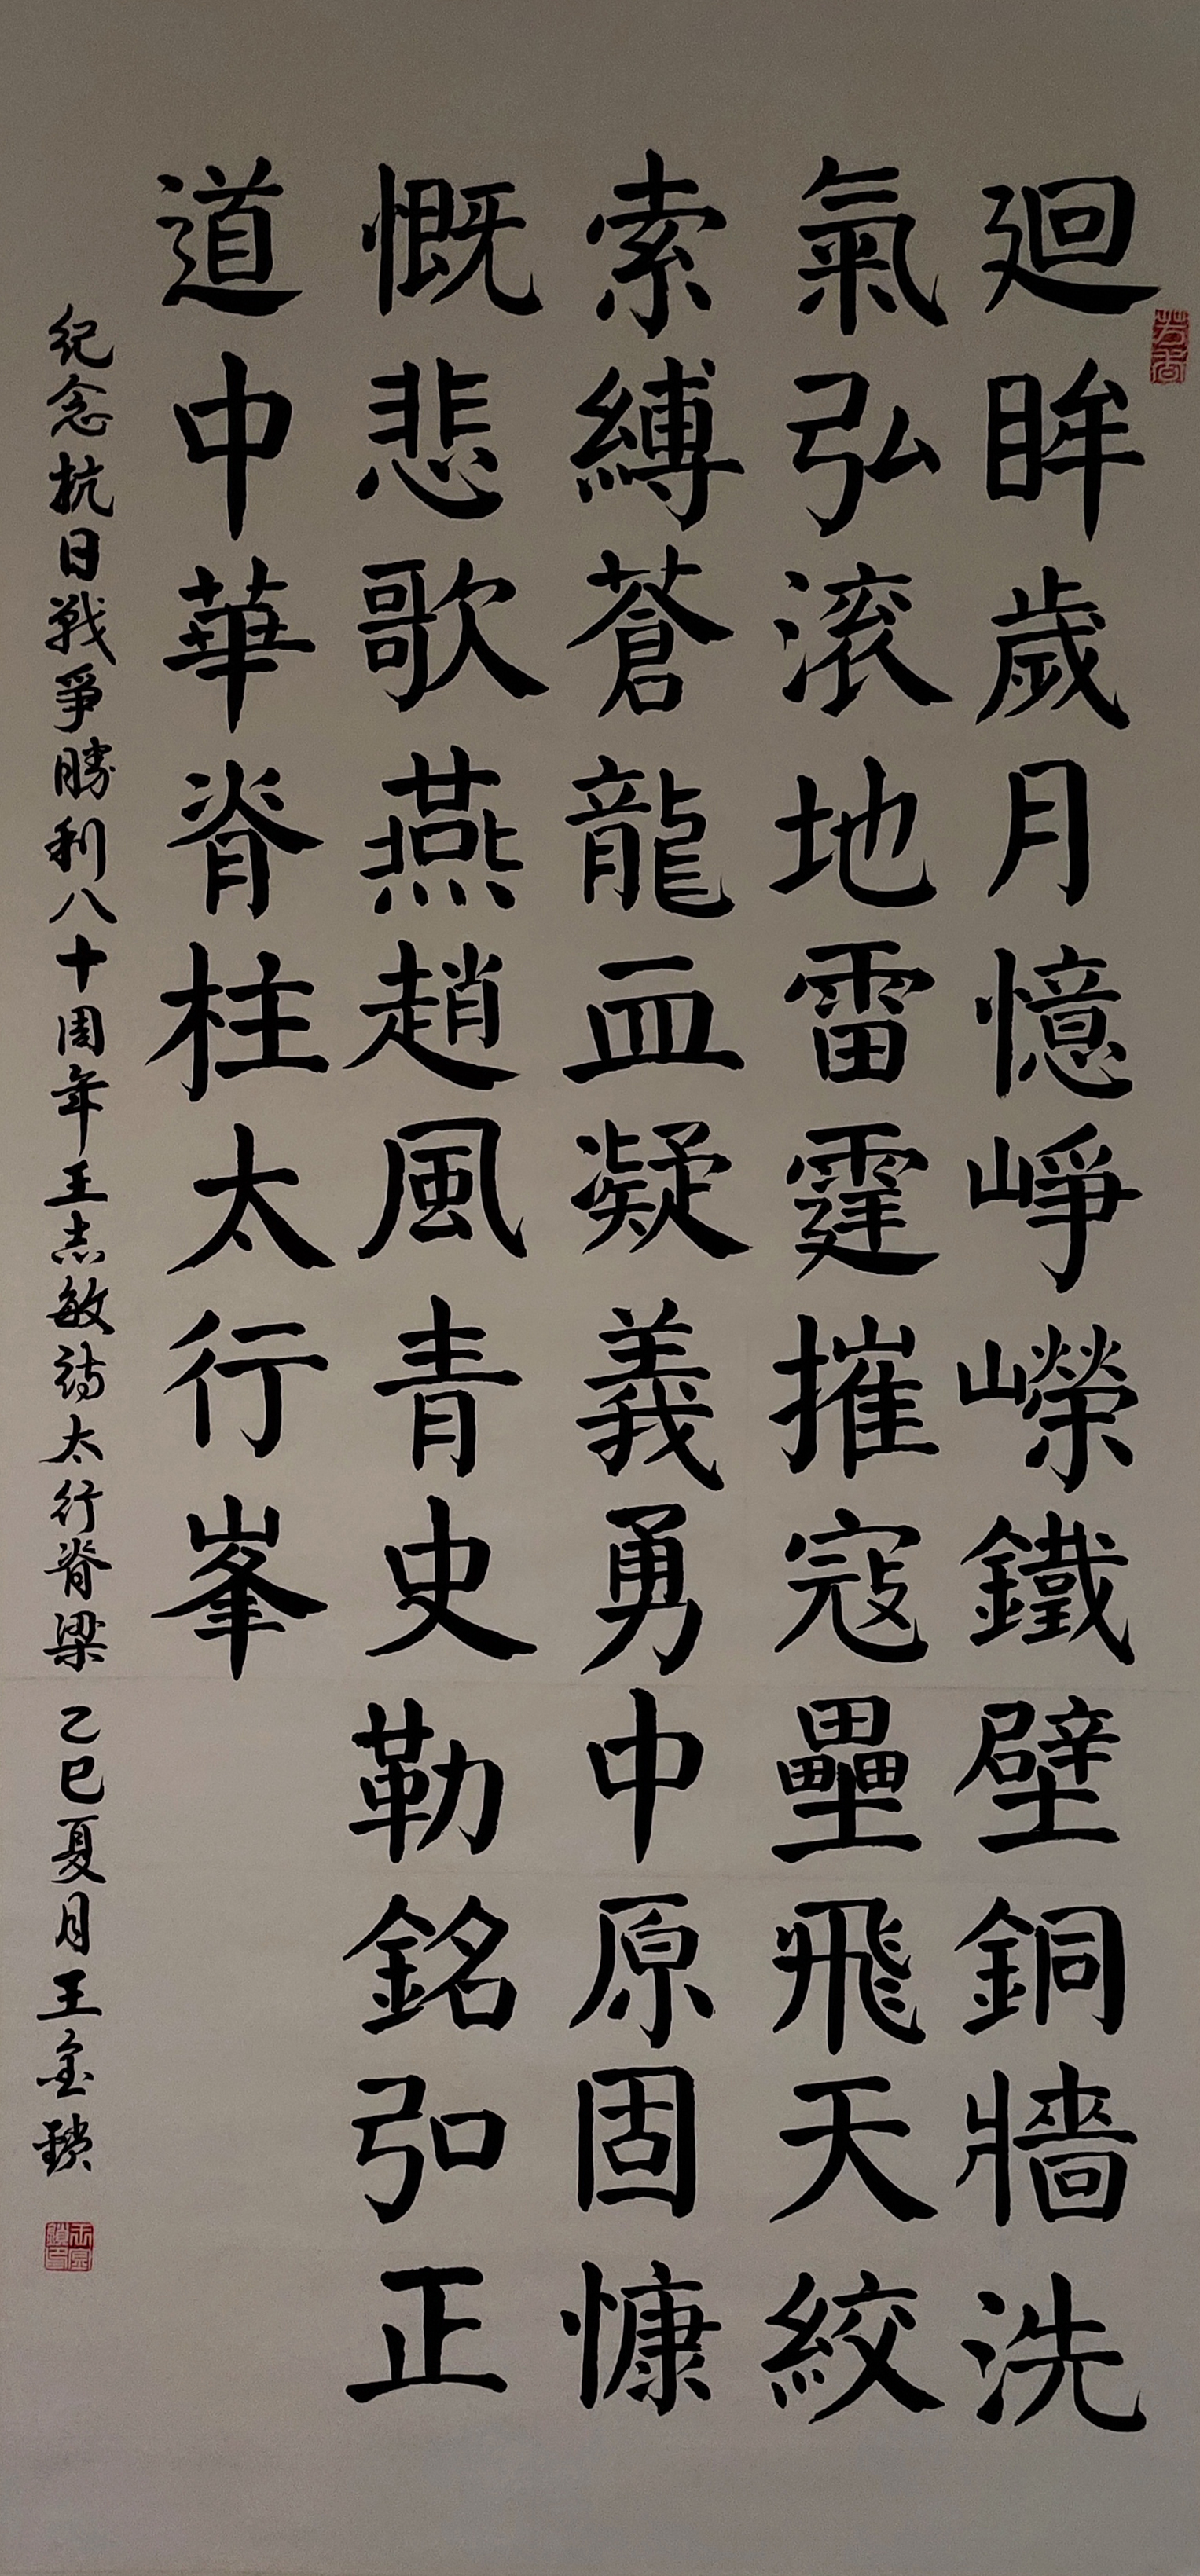 廻眸歲月憶崢嶸鐵壁銅牆洗
氣弘滚地雷霆摧寇壘飛天絞
索縛蒼龍血凝義勇中原固慷
慨悲歌燕趙風青史勒銘弘正
道中華脊柱太行峯
纪念抗日戰爭勝利八十周年王志敏诗太行脊梁 乙巳夏月王金鎖